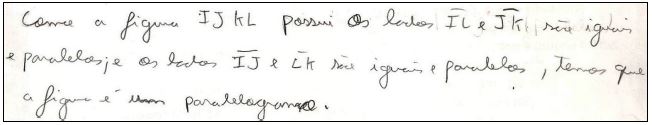 Como a figura IJKL possui os lados I̅L̅ e J̅K̅, são iguais
e paralelos, e os lados I̅J̅ e L̅K̅ são iguais e paralelos, temos que
a figura é um paralelogramo.